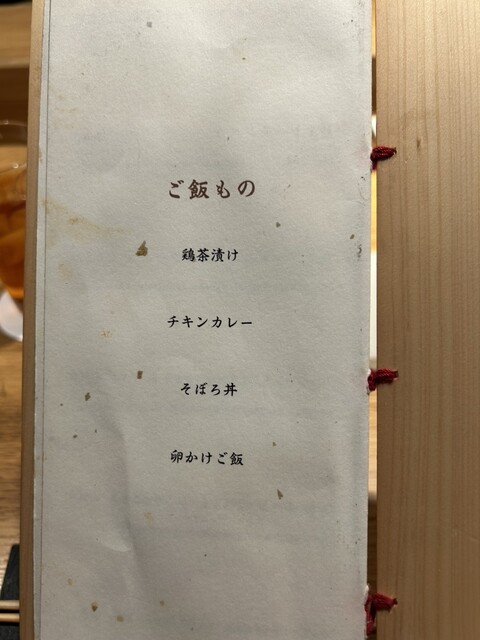 ご飯もの
鶏茶漬け
チキンカレー
そぼろ丼
卵かけご飯